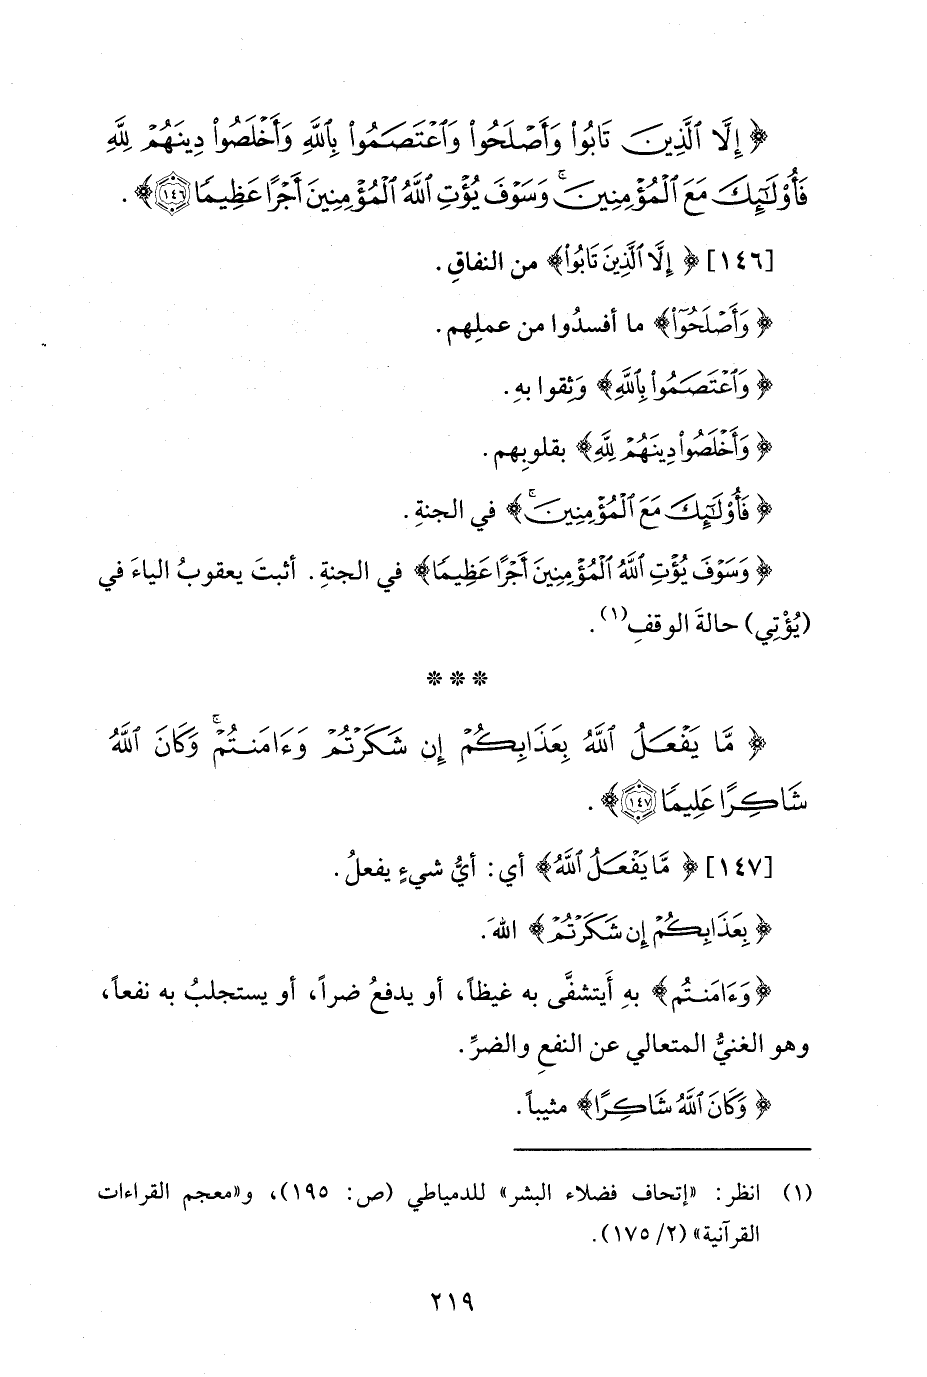 ﴿ إِلَّا ٱلَّذِينَ تَابُوا۟ وَأَصْلَحُوا۟ وَٱعْتَصَمُوا۟ بِٱللَّهِ وَأَخْلَصُوا۟ دِينَهُمْ لِلَّهِ
فَأُو۟لَٰٓئِكَ مَعَ ٱلْمُؤْمِنِينَ ۖ وَسَوْفَ يُؤْتِ ٱللَّهُ ٱلْمُؤْمِنِينَ أَجْرًا عَظِيمًا ١٤٦﴾ .
[١٤٦] ﴿ إِلَّا ٱلَّذِينَ تَابُوا۟﴾ من النفاقِ.
﴿ وَأَصْلَحُوٓا۟﴾ ما أفسدُوا من عملِهم.
﴿ وَٱعْتَصَمُوا۟ بِٱللَّهِ﴾ وَثِقوا بهِ.
﴿ وَأَخْلَصُوا۟ دِينَهُمْ لِلَّهِ﴾ بقلوبِهم.
﴿ فَأُو۟لَٰٓئِكَ مَعَ ٱلْمُؤْمِنِينَ ۚ﴾ في الجنةِ.
﴿ وَسَوْفَ يُؤْتِ ٱللَّهُ ٱلْمُؤْمِنِينَ أَجْرًا عَظِيمًا﴾ في الجنةِ. أثبتَ يعقوبُ الياءَ في
(يُؤْتِي) حالةَ الوقفِ(١).
* * *
﴿ مَّا يَفْعَلُ ٱللَّهُ بِعَذَابِكُمْ إِن شَكَرْتُمْ وَءَامَنتُمْ ۚ وَكَانَ ٱللَّهُ
شَاكِرًا عَلِيمًا ١٤٧﴾ .
[١٤٧] ﴿ مَّا يَفْعَلُ ٱللَّهُ﴾ أي: أيُّ شيءٍ يفعلُ.
﴿ بِعَذَابِكُمْ إِن شَكَرْتُمْ﴾ اللهَ.
﴿ وَءَامَنتُم﴾ بهِ أَيتشفَّى به غيظاً، أو يدفعُ ضراً، أو يستجلبُ به نفعاً،
وهو الغنيُّ المتعالي عن النفعِ والضرِّ.
﴿ وَكَانَ ٱللَّهُ شَاكِرًا﴾ مثيباً.
(١) انظر: «إتحاف فضلاء البشر» للدمياطي (ص: ١٩٥)، و«معجم القراءات
القرآنية» (٢/ ١٧٥).
٢١٩